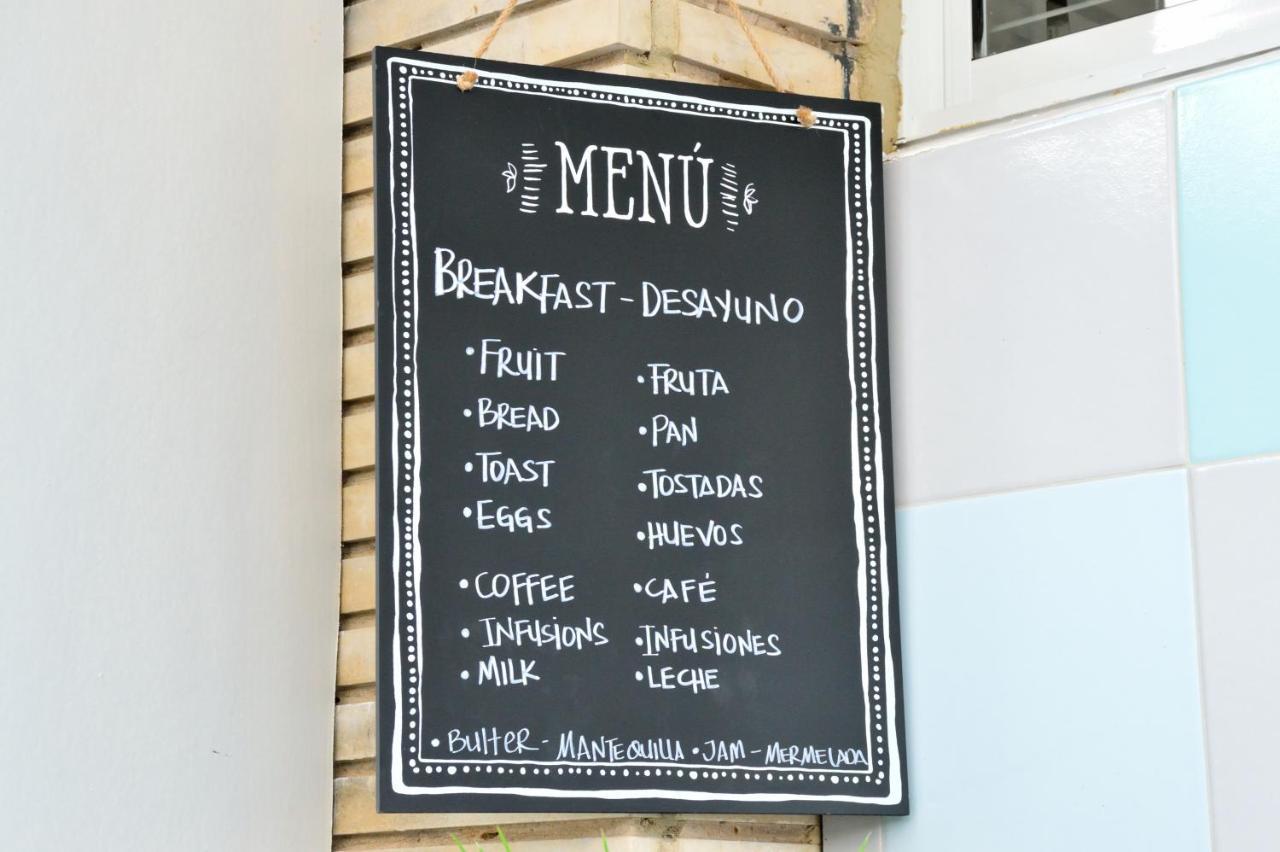 MENÚ
BREAKFAST - DESAYUNO
• FRUIT
• BREAD
• TOAST
• EGGS
• COFFEE
• INFUSIONS
• MILK
• FRUTA
• PAN
• TOSTADAS
• HUEVOS
• CAFÉ
• INFUSIONES
• LECHE
• ButtER - MANTEQUILLA • JAM - MERMELADA